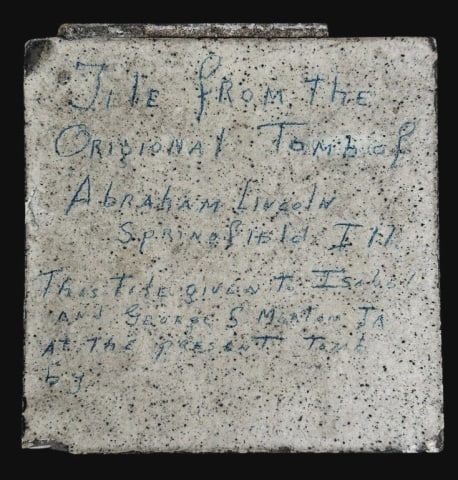 Tile from the
Origional Tomb of
Abraham Lincoln
Springfield Ill
This tile given to Isabel
and George S Morton Jr
at the present Tomb
by